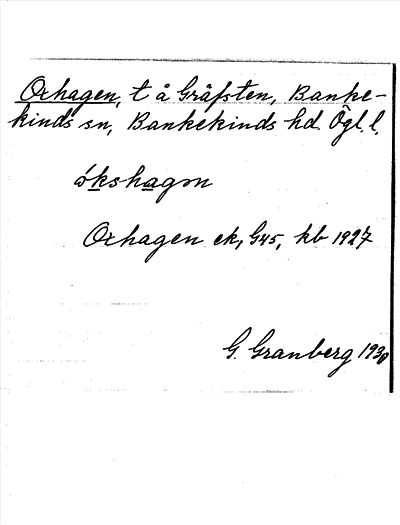 Oxhagen, t å Gråfsten, Banke-
kinds sn, Bankekinds hd Ögl. l.
ókshagən
Oxhagen ek, G45, kb 1927
G. Granberg 1930